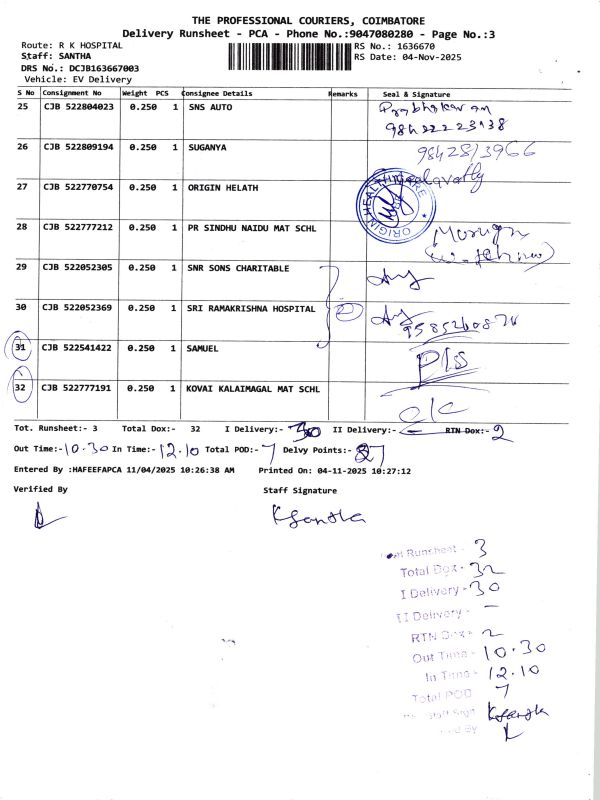 THE PROFESSIONAL COURIERS, COIMBATORE
Delivery Runsheet - PCA - Phone No.:9047080280 - Page No.:3
Route: R K HOSPITAL
RS No.: 1636670
Staff: SANTHA
RS Date: 04-Nov-2025
DRS No.: DCJB163667003
Vehicle: EV Delivery
S No Consignment No Weight PCS Consignee Details Remarks Seal & Signature
25 CJB 522804023 0.250 1 SNS AUTO Prabhakaran
9842223938
26 CJB 522809194 0.250 1 SUGANYA 9842813966
27 CJB 522770754 0.250 1 ORIGIN HELATH
ORIGIN HEALTHCARE
28 CJB 522777212 0.250 1 PR SINDHU NAIDU MAT SCHL
29 CJB 522052305 0.250 1 SNR SONS CHARITABLE
30 CJB 522052369 0.250 1 SRI RAMAKRISHNA HOSPITAL 2
31 CJB 522541422 0.250 1 SAMUEL P/S
32 CJB 522777191 0.250 1 KOVAI KALAIMAGAL MAT SCHL
Tot. Runsheet:- 3 Total Dox:- 32 I Delivery:- 30 II Delivery:- – RTN Dox:- 2
Out Time:- 10.30 In Time:- 12.10 Total POD:- 7 Delvy Points:- 27
Entered By :HAFEEFAPCA 11/04/2025 10:26:38 AM Printed On: 04-11-2025 10:27:12
Verified By Staff Signature
KSantha
Runsheet - 3
Total Dox - 32
I Delivery - 30
II Delivery - –
RTN Dox - 2
Out Time - 10.30
In Time - 12.10
Total POD 7
Staff Sign KSantha
By